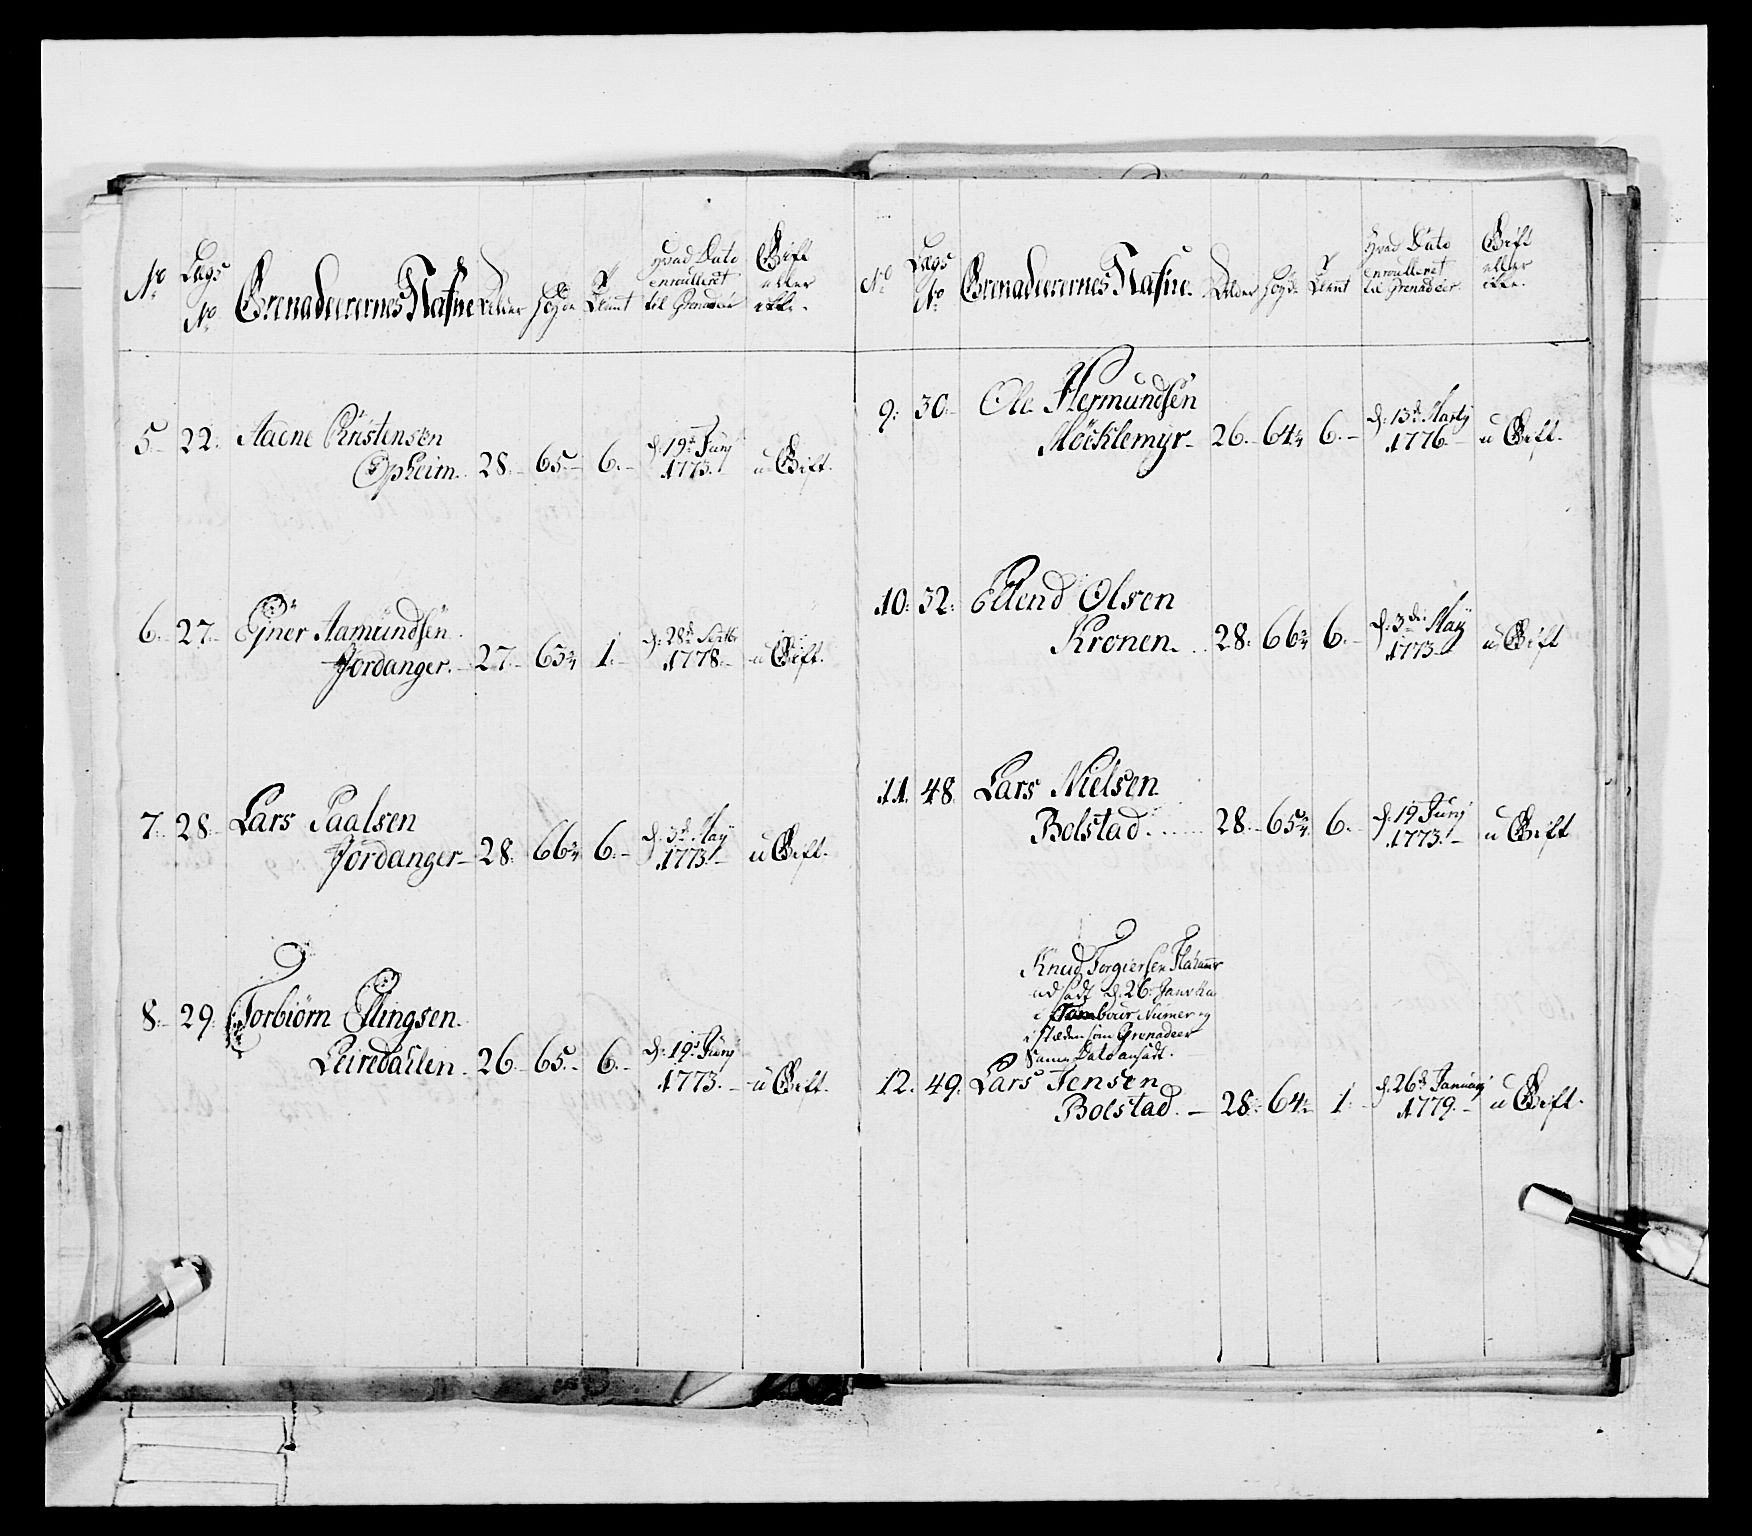 No
Lægs No
Grenadeerernes Nafne
Alder
Høyde
Tient
Hvad Dato enroulleret til Grenadeer
Gift eller ikke.
5. 22. Aadne Christensen
Opheim. 28. 65. 6. d: 19d Junij 1773. u Gift.
6. 27. Ejner Aamundsen
Jordanger. 27. 65¾ 1. d: 28d Septbr 1778. u Gift.
7. 28. Lars Paalsen
Jordanger 28. 66¾ 6. d: 3d Maij 1773. u Gift.
8. 29. Torbiörn Ellingsen
Leiredahlen. 26. 65. 6. d: 19d Junij 1773. u Gift.
No
Lægs No
Grenadeerernes Nafne.
Alder
Høyde
Tient
Hvad Dato enroulleret til Grenadeer
Gift eller ikke.
9. 30. Ole Hermundsen
Möcklemyr 26. 64¼ 6. d: 13d Martij 1776. u Gift.
10. 32. Ellend Olsen
Kronen. 28. 66¾ 6. d: 3de Maij 1773. u Gift
11. 48. Lars Nielsen
Bolstad. 28. 65¾ 6. d: 19 Junij 1773. u Gift
Knud Torgiersen
udsadt d. 26
i Tambour Numer og
i stæden som Grenadeer
Samme Dato ansadt.
12. 49. Lars Jensen
Bolstad. 28. 64½ 1. d: 26d Januarij 1779. u Gift.